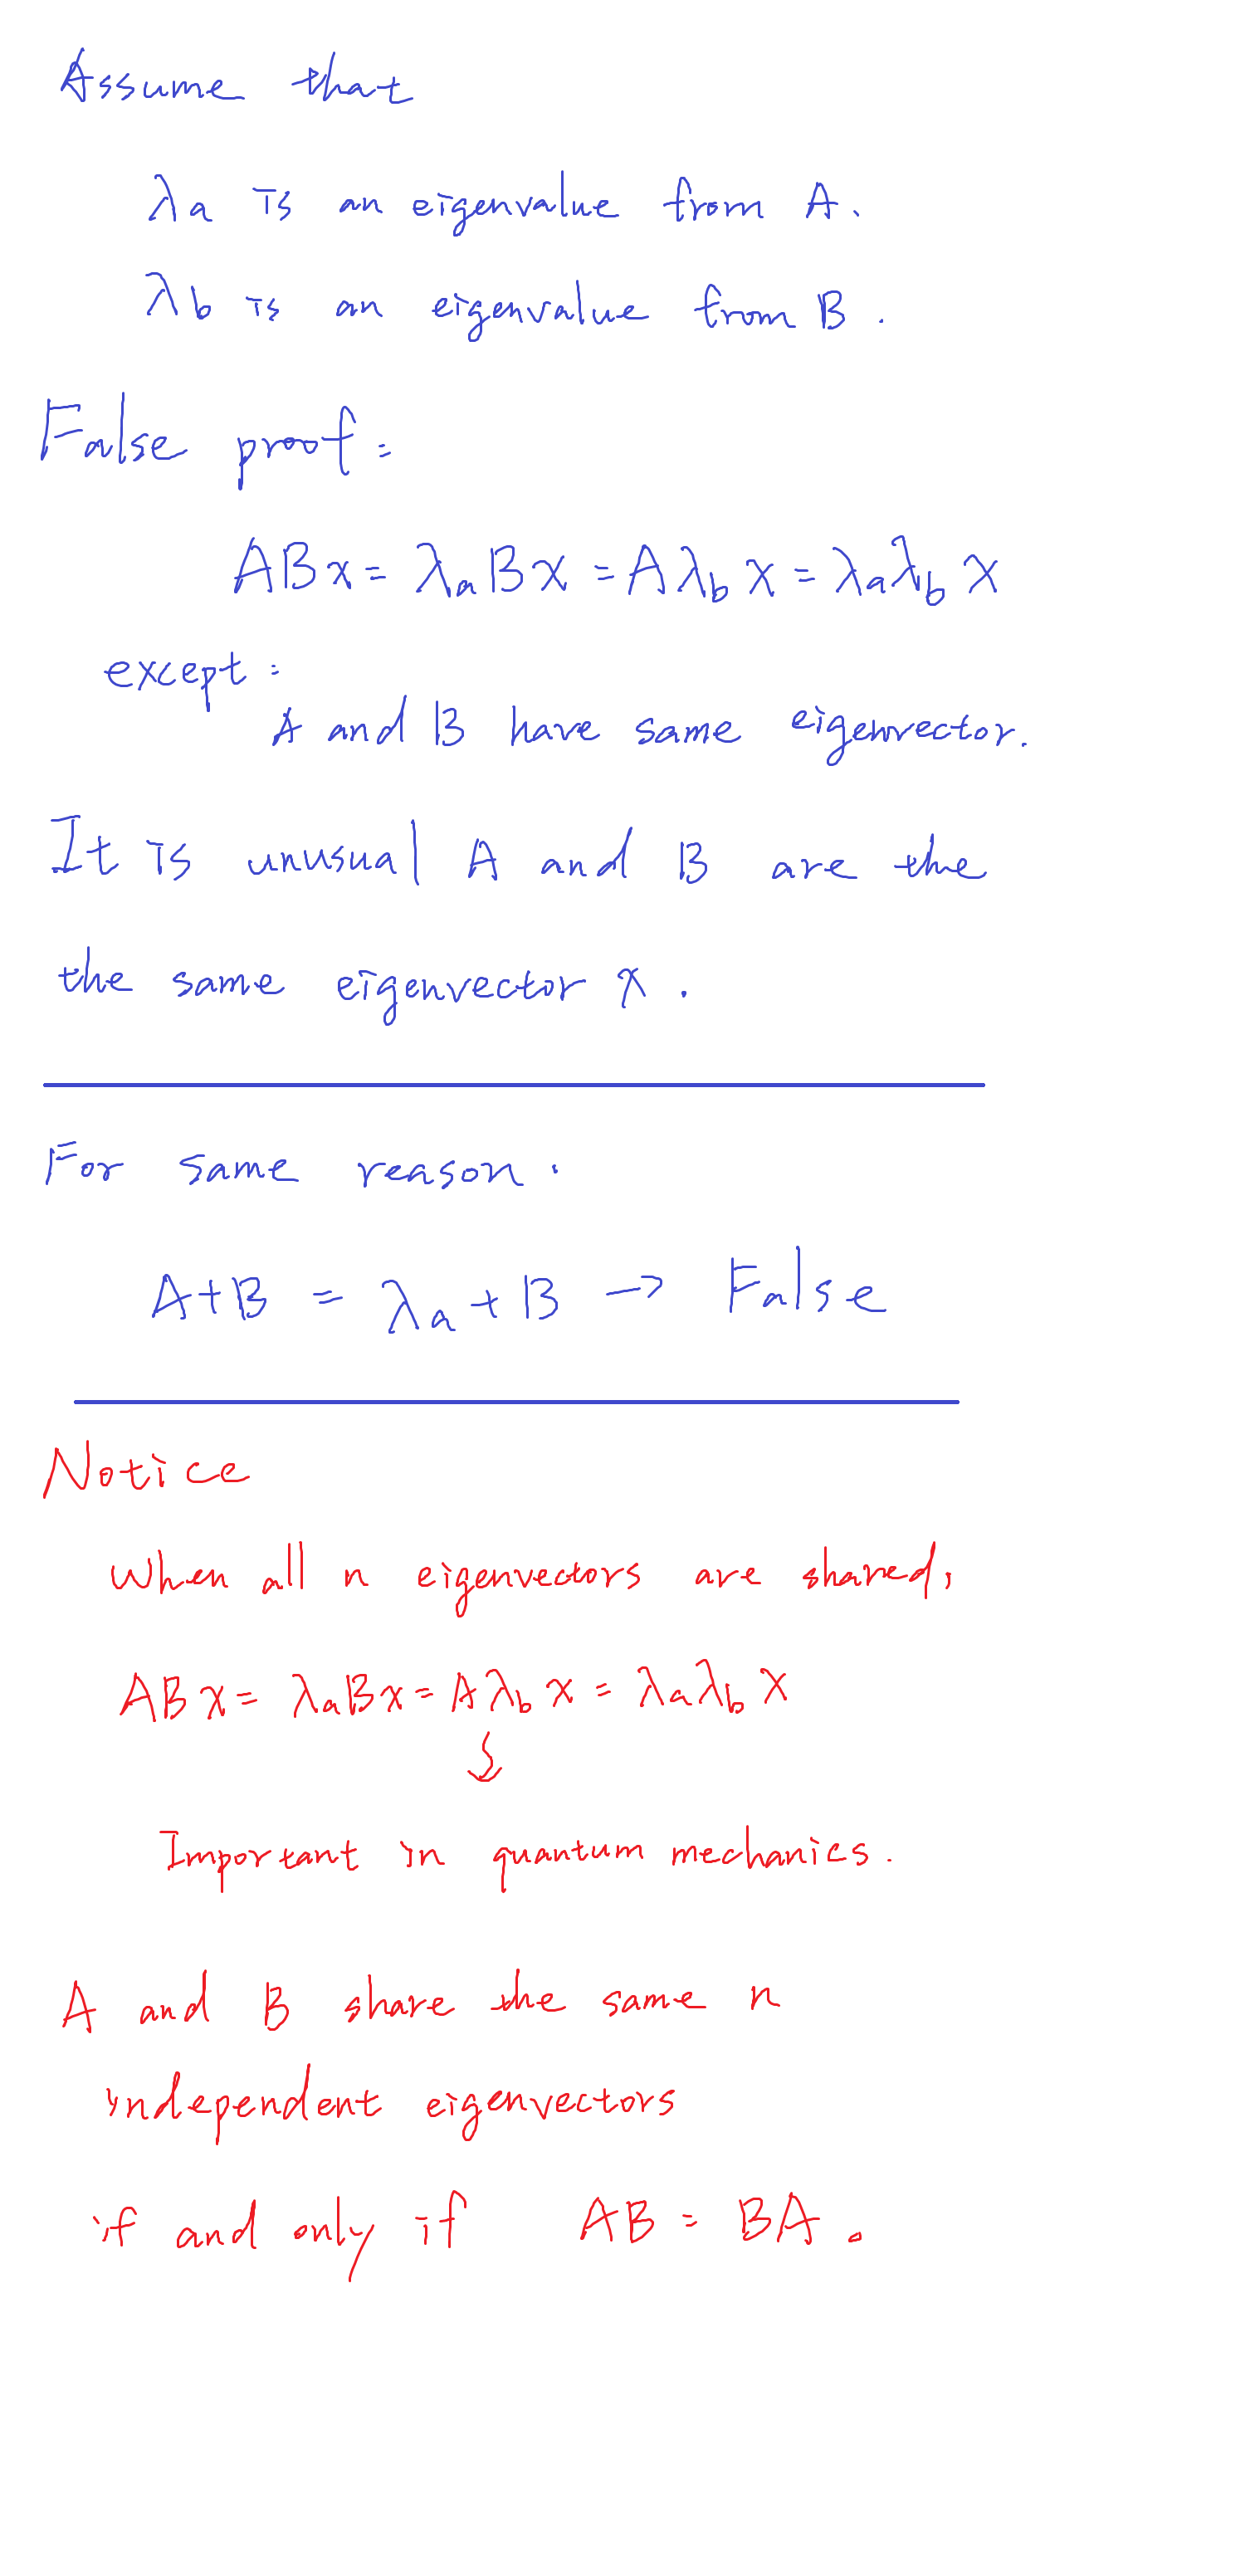 Assume that
λa is an eigenvalue from A.
λb is an eigenvalue from B.
False proof:
ABx = λₐBx = Aλ_b x = λₐλ_b x
except:
A and B have same eigenvector.
It is unusual A and B are the
the same eigenvector x.
For same reason.
A+B = λₐ+B → False
Notice
When all n eigenvectors are shared,
ABx = λₐBx = Aλ_b x = λₐλ_b x
↓
Important in quantum mechanics.
A and B share the same n
independent eigenvectors
if and only if AB = BA.